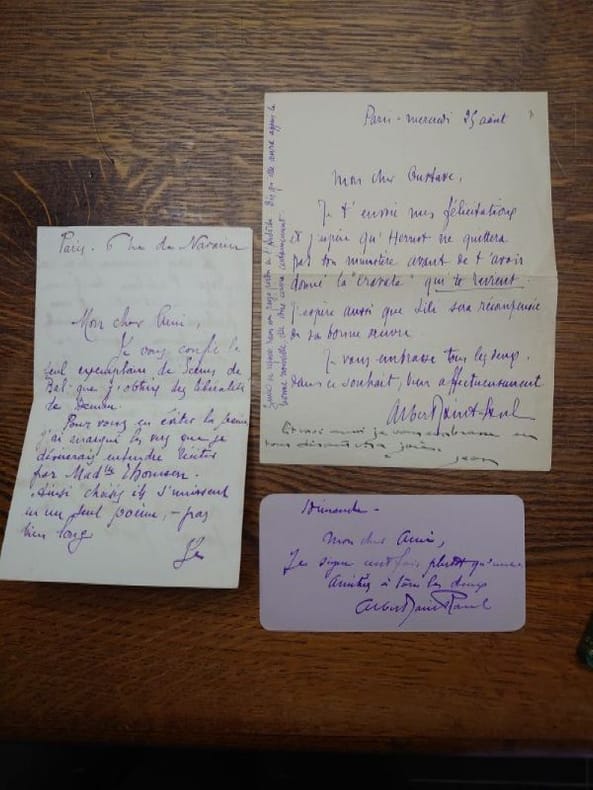 Paris. 6 rue de Navarin
Mon cher Ami,
Je vous confie le
seul exemplaire de Scènes de
Bal que j'obtins des libéralités
de
Pour vous en éviter la peine
j'ai marqué les vers que je
désirerais entendre réciter
par Mad lle Thomsen.
Ainsi choisis ils s'unissent
en un seul poème, – pas
bien long
Paris – mercredi 25 août
Mon cher Gustave,
Je t'envoie mes félicitations
et j'espère qu'Herriot ne quittera
pas son ministère avant de t'avoir
donné la "cravate" qui te revient.
J'espère aussi que Lili sera récompensée
de sa bonne
Je vous embrasse tous les deux
dans ce souhait, bien affectueusement
Albert Saint-Paul
Et moi aussi je vous embrasse en
vous disant
Jean
Dimanche –
Mon cher Ami,
Je signe une fois plutôt qu'une
Amitiés à tous les deux
Albert Saint-Paul